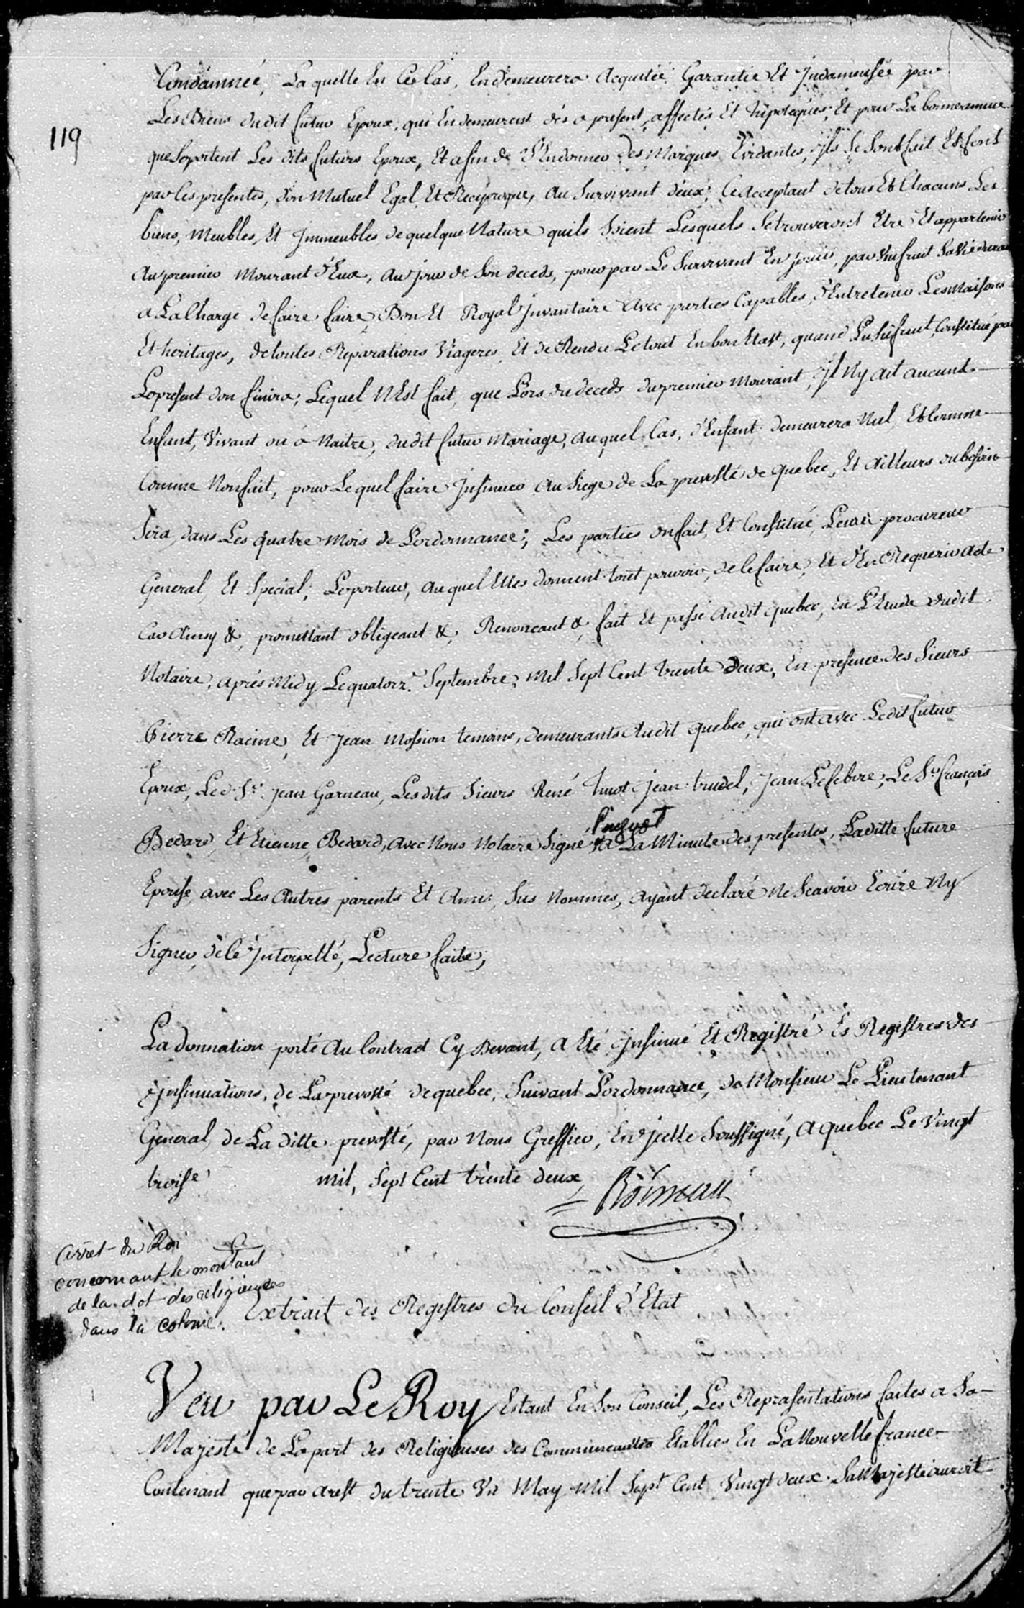 119
Condamnée, Laquelle En Ce Cas, En demeurera Acquitée Garantie Et Jndamnisée par
Les Biens dudit futur Epoux, qui En demeurent dès a present, affectés Et hipotequés, Et pour La bonne amour
que Se portent Les dits futurs Epoux, Et afin de S'En donner des Marques Evidantes, Jls Se Sont fait Et font
par Ces presentes, don Mutuel Egal, Et Reciproque, Au Survivant d'eux, Ce Acceptant de tous Et Chacuns Les
biens, Meubles, Et Jmmeubles de quelque Nature quils Soient Lesquels Se trouveront Etre Et appartenir
Au premier Mourant d'Eux, Au jour de Son deceds, pour par Le Survivant En jouir, par Usufruit Sa Vie durant
a La Charge de faire faire Bon Et Loyal Jnvantaire avec parties Capables, d'Entretenir Les Maisons
Et heritages, de toutes Reparations Viageres, Et de Rendre Le tout En bon Etat, quand L'usufruit Constitué par
Le present don finira; Lequel N'Est fait, que Lors du deceds du premier Mourant, Jl N'y ait aucuns
Enfant, Vivant ou à Naitre, dudit futur Mariage, Auquel Cas, d'Enfant demeurera Nul, Et Comme
Comme Non fait, pour Lequel faire Jnsinuer Au Siege de La prevosté de Quebec, Et Ailleurs ou besoin
Sera, dans Les quatre Mois de L'ordonnance; Les parties On fait Et Constitué Leur procureur
General Et Special; Le porteur, Auquel Elles donnent tout pouvoir, de le faire, Et d'En Requerir Acte
Car Ainsy &, promettant obligeant & Renoncant &, fait Et passé Audit Quebec, En L'Etude dudit
Notaire, Après Midy Le quatorz.e Septembre, Mil Sept Cent trente Deux, En presence des Sieurs
Pierre Racine, Et Jean Mossion temoins, demeurants Audit Quebec, qui ont avec Ledit futur
Epoux, Led. Sr. Jean Garneau, Les dits Sieurs René hinot Jean trudel, Jean Lefebvre, Le Sr. François
Bedard, Et Etienne Bedard, avec Nous Notaire Signé La Minute des presentes, Laditte future
Epouse, avec Les Autres parents Et Amis, Sus Nommés, Ayant declaré Ne Scavoir Ecrire Ny
Signer, de ce Interpellé, Lecture faite,
La donnation porté Au Contract Cy Devant, A Eté Jnsinué Et Registré Es Registres des
Jnsinuations, de La prevosté de quebec, Suivant L'ordonnance, de Monsieur Le Lieutenant
General, de La ditte prevosté, par Nous Greffier, En Jcelle Soussigné, A quebec Le Vingt
troise mil, Sept Cent trente deux,
Boisseau
arrest du Roi
concernant le montant
de la dot des religieuses
dans la colonie.
Extrait des Registres du Conseil d'Etat
Veu par Le Roy Estant En Son Conseil, Les Representations faites a Sa
Majesté de La part des Religieuses des Communeautés Etablies En La Nouvelle france
Contenant que par arest du trente Un May Mil Sept Cent Vingt deux Sa Majesté auroit